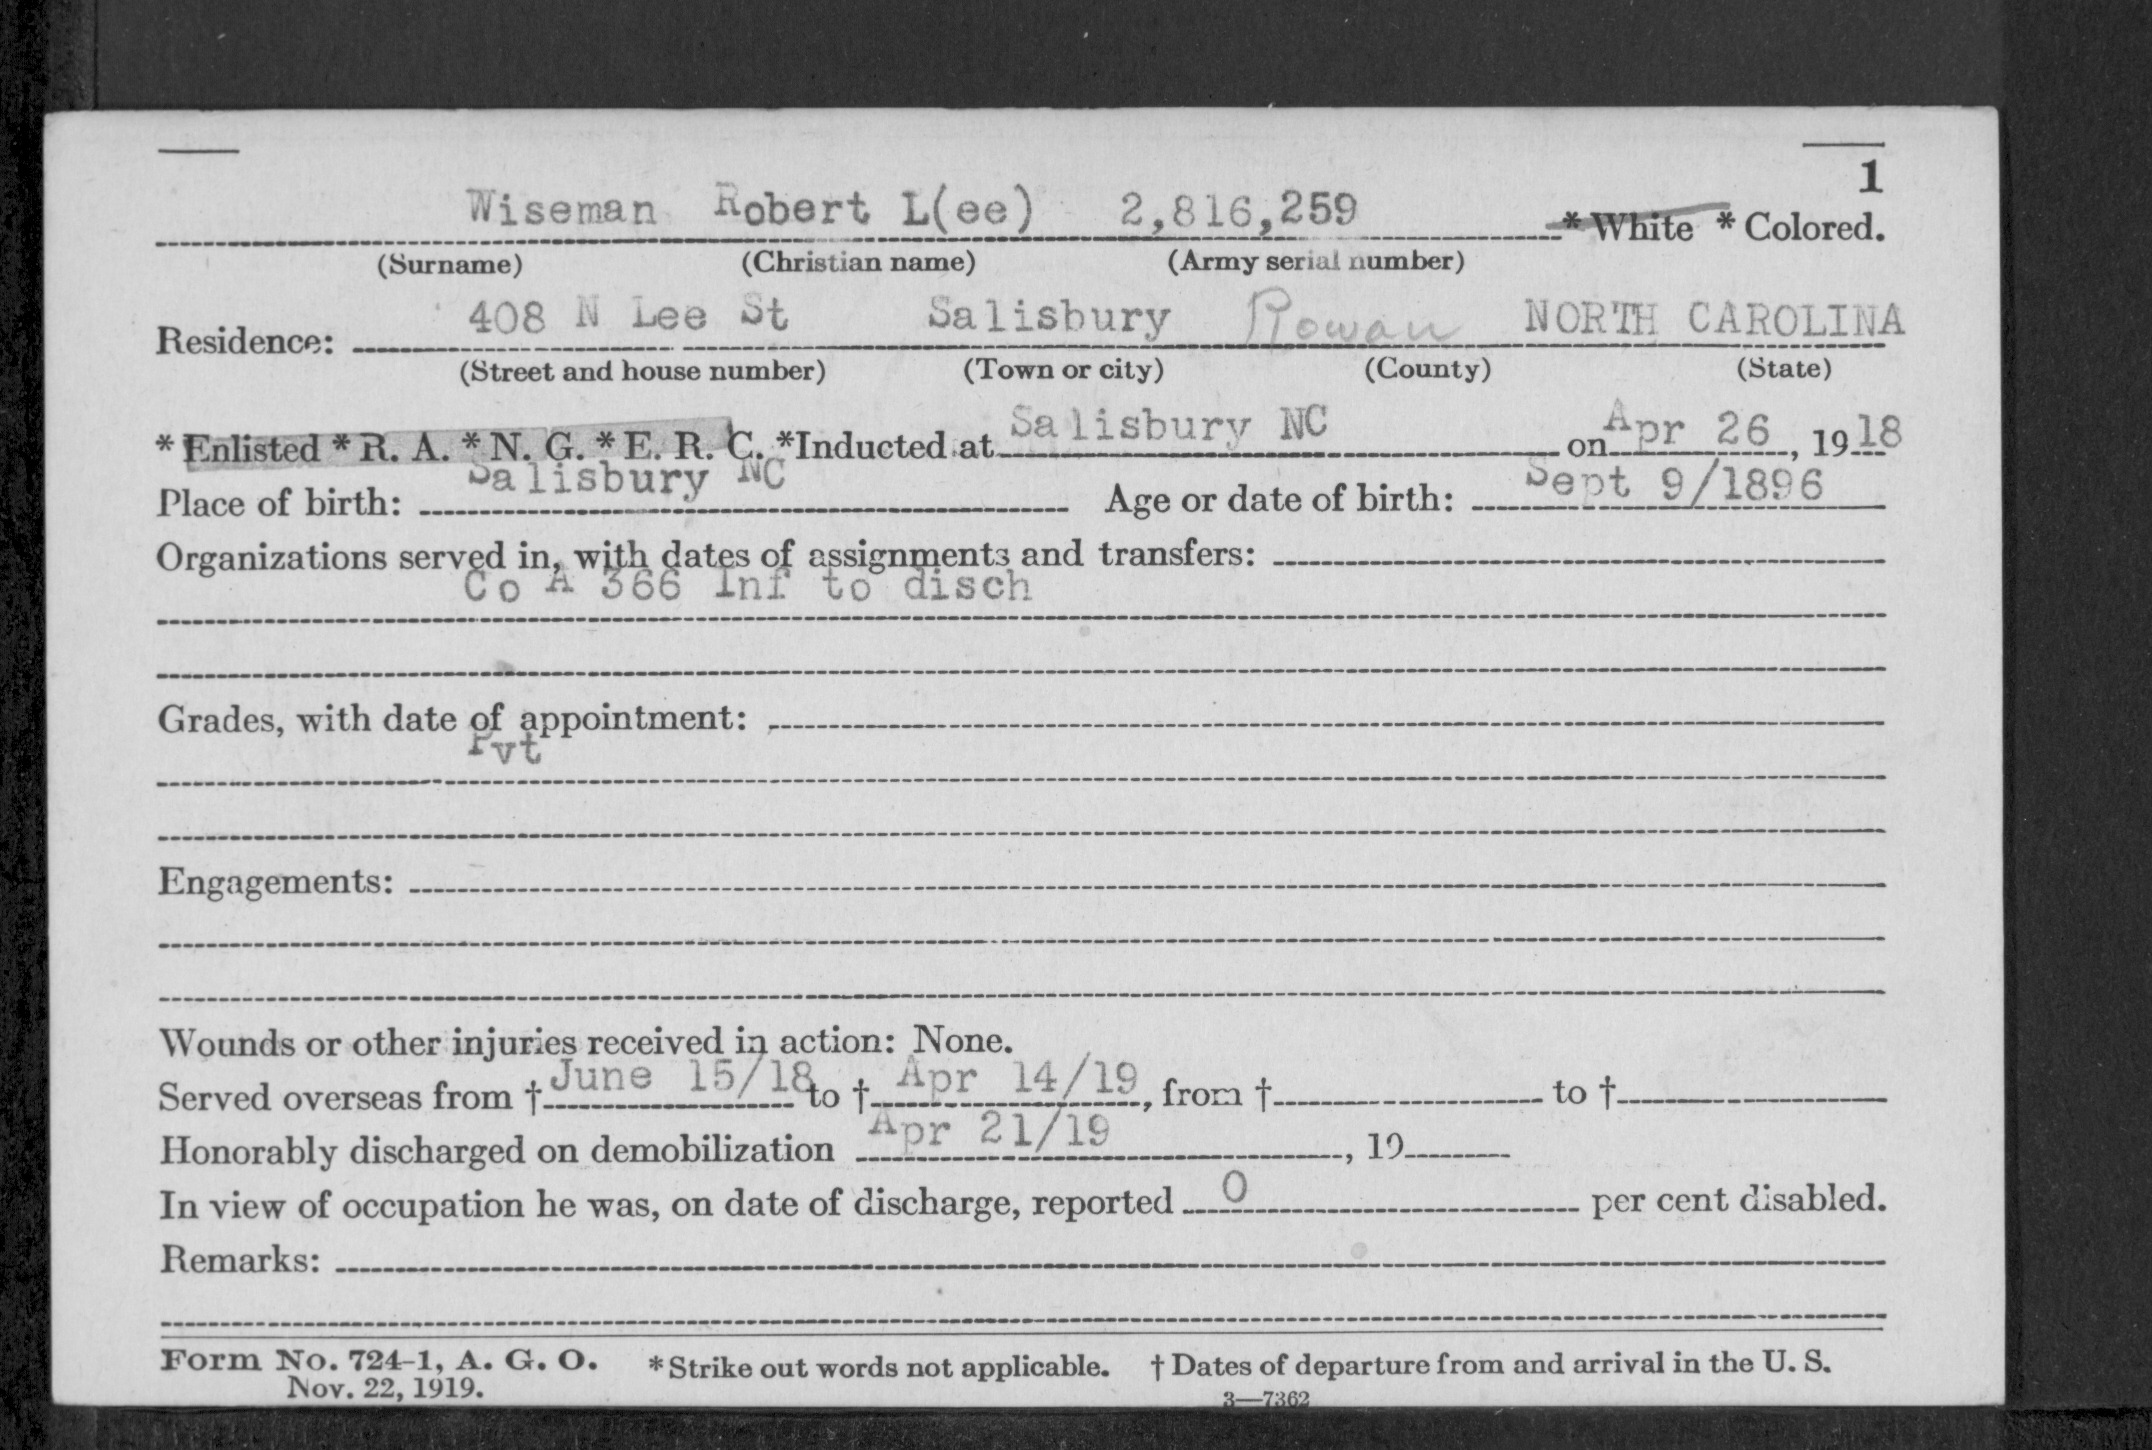 1
Wiseman Robert L(ee) 2,816,259 * White * Colored.
(Surname) (Christian name) (Army serial number)
Residence: 408 N Lee St Salisbury Rowan NORTH CAROLINA
(Street and house number) (Town or city) (County) (State)
* Enlisted * R. A. * N. G. * E. R. C. *Inducted at Salisbury NC on Apr 26, 1918
Place of birth: Salisbury NC Age or date of birth: Sept 9/1896
Organizations served in, with dates of assignments and transfers:
Co A 366 Inf to disch
Grades, with date of appointment:
Pvt
Engagements:
Wounds or other injuries received in action: None.
Served overseas from † June 15/18 to † Apr 14/19, from † to †
Honorably discharged on demobilization Apr 21/19, 19
In view of occupation he was, on date of discharge, reported 0 per cent disabled.
Remarks:
Form No. 724-1, A. G. O. * Strike out words not applicable. † Dates of departure from and arrival in the U. S.
Nov. 22, 1919. 3—7362